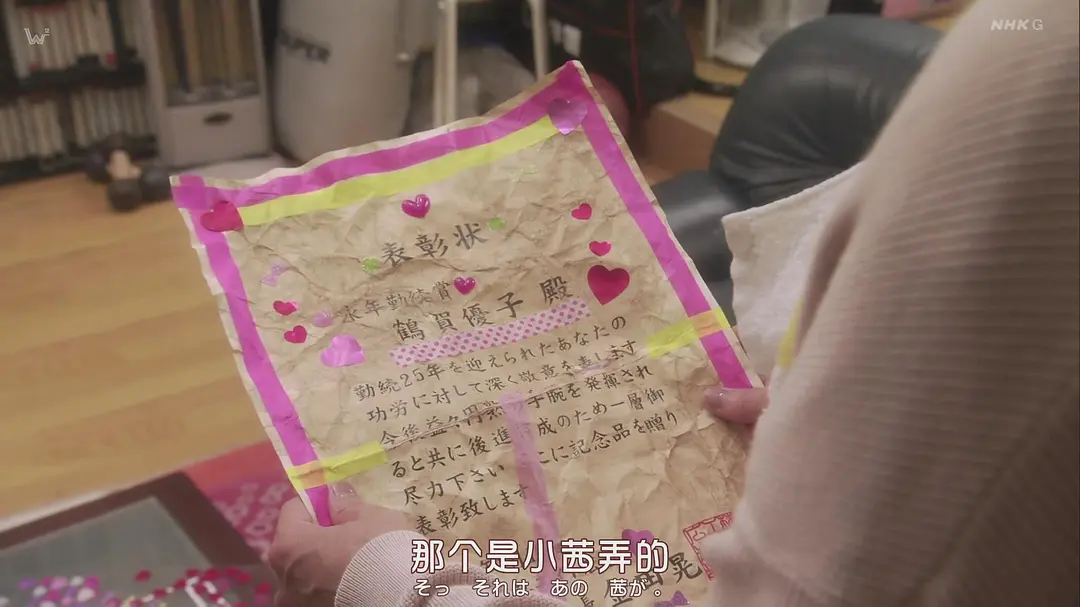 NHK G
表彰状
永年勤続賞
鶴賀優子 殿
勤続25年を迎えられたあなたの
功労に対して深く敬意を表します
今後益々円熟の手腕を発揮され
ると共に後進 成のため一層御
尽力下さい こに記念品を贈り
表彰致します
那个是小茜弄的
そっ それは あの 茜が。